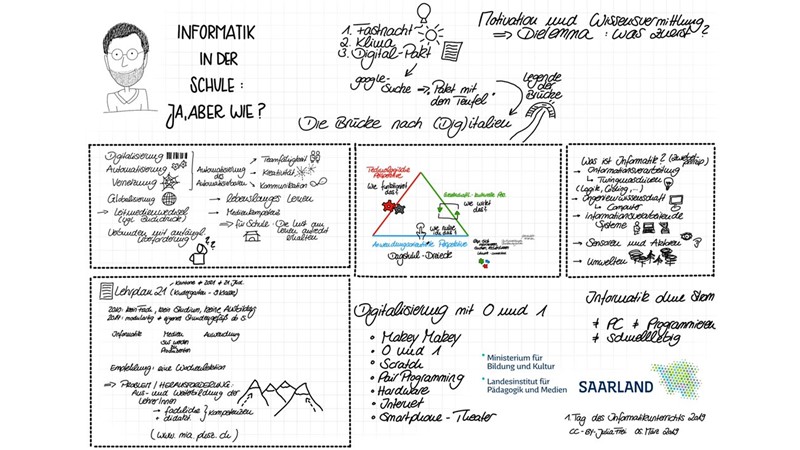 INFORMATIK
IN DER
SCHULE:
JA, ABER WIE?
1. Fastnacht
2. Klima
3. Digital-Pakt
google-
Suche → "Pakt mit
dem Teufel"
Legende
der
Brücke
Die Brücke nach (Dig)italien
Motivation und Wissensvermittlung
⇒ Dilemma: was zuerst?
Digitalisierung
Automatisierung
Vernetzung
Globalisierung
→ Leitmedienwechsel
(vgl. Buchdruck)
Verbunden mit anfängl.
Überforderung
Automatisierung
des
Automatisierbaren
→ Teamfähigkeit
→ Kreativität
→ Kommunikation
→ lebenslanges Lernen
→ Medienkompetenz
⇒ für Schule: Die Lust am
Lernen
erhalten
Technologische
Perspektive
Wie funktioniert
das?
Gesellschaftl.-kulturelle Per.
Wie wirkt
das?
Wie nutze
ich das?
Anwendungsorientierte Perspektive
Dagstuhl-Dreieck
Was ist Informatik?
→ Informationsverarbeitung
↳ Turingmaschinen
(Logik, Coding, ...)
→ Ingenieurwissenschaft
↳ Computer
→ Informationsverarbeitende
Systeme
→ Sensoren und Aktoren
→ Umwelten
Lehrplan 21
(Kindergarten - 9. Klasse)
2010: kein Fach, kein Studium, keine Ausbildung
Informatik Medien Anwendung
Empfehlung: eine Wochenlektion
⇒ PROBLEM / HERAUSFORDERUNG:
Aus- und Weiterbildung der
LehrerInnen
→ fachliche
• didakt.
Kompetenzen
Digitalisierung mit 0 und 1
• Makey Makey
• 0 und 1
• Scratch
• Pair Programming
• Hardware
• Internet
• Smartphone-Theater
Informatik ohne Strom
≠ PC ≠ Programmieren
≠ schnelllebig
Ministerium für
Bildung und Kultur
Landesinstitut für
Pädagogik und Medien
SAARLAND
1. Tag des Informatikunterrichts 2019
CC-BY-Julia Frei 05. März 2019